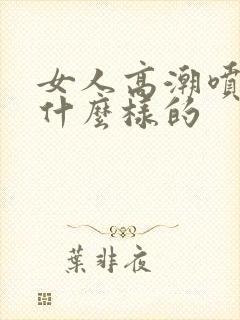 女人高潮噴
什麼樣的
葉非夜